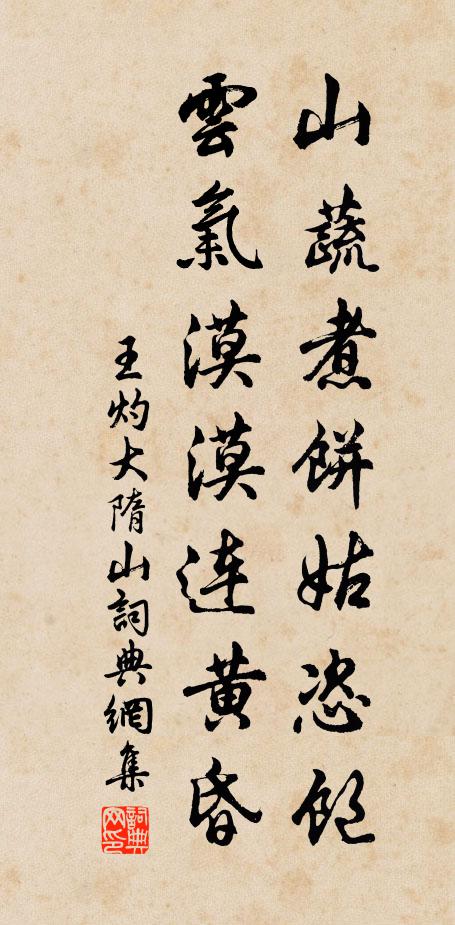 山蔬煮餅姑恣飽
雲氣漠漠連黄昏
王灼大隋山詞典網集
詞典
网印